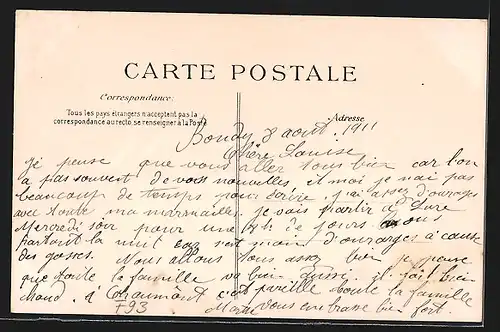 CARTE POSTALE
Correspondance
Tous les pays étrangers n'acceptent pas la
correspondance au recto, se renseigner à la Poste
Adresse
Bondy 8 aout 1911
Chère Louise
je pense que vous aller tous bien car bon
a pas souvent de vos nouvelles, it moi je nai pas
beaucoup de temps pour écrire, j'ai assez d'ouvrages
avec toute ma marmaille, je vais partir a
Mercredi soir pour une de jours
partant la nuit d'ouvrages à cause
des gosses. Nous allons tous assez bien je pense
que toute la famille va bien aussi. il fait bien
chaud. à Chaumont c'est pareille toute la famille
vous embrasse bien fort.
F93